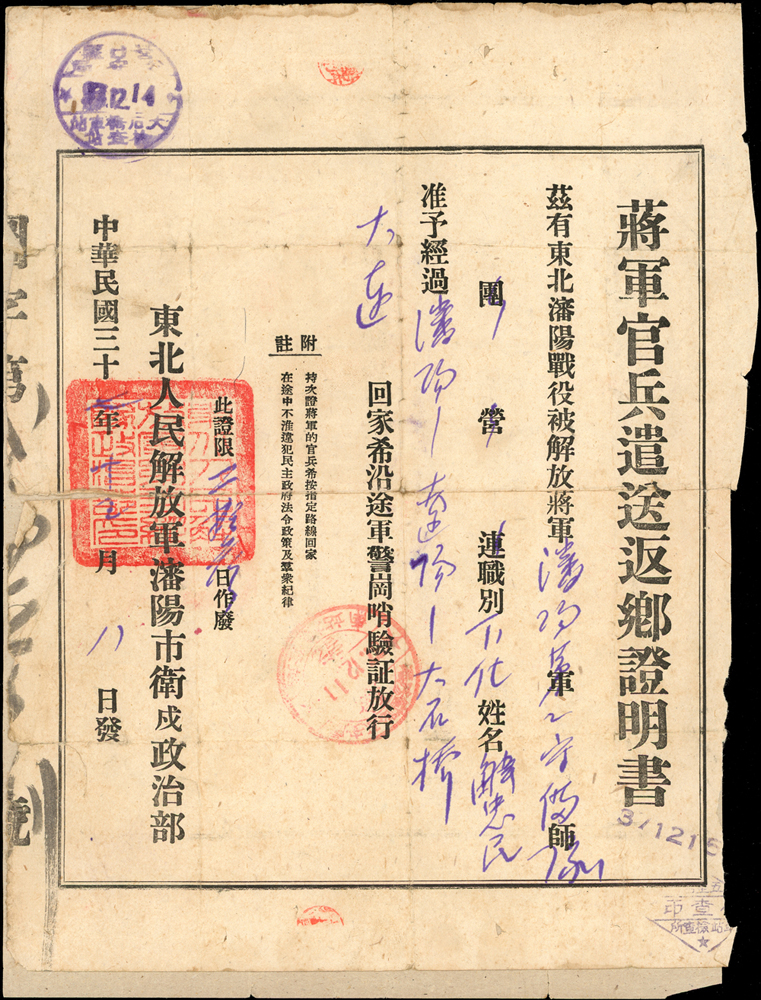 蔣軍官兵遣送返鄉證明書
茲有東北瀋陽戰役被解放將軍瀋陽第二守備師隊
團 營 連職別下仕姓名解忠民
准予經過瀋陽—遼陽—大石橋
大連
回家希沿途軍警崗哨驗証放行
附註
持次證蔣軍的官兵希按指定路線回家
在途中不准違犯民主政府法令政策及羣衆紀律
此證限 日作廢
東北人民解放軍瀋陽市衛戍政治部
中華民國三十七年十二月八日發
12.14
大石橋車站
檢查站
12.11
371215
查印
站檢查所
字第
號